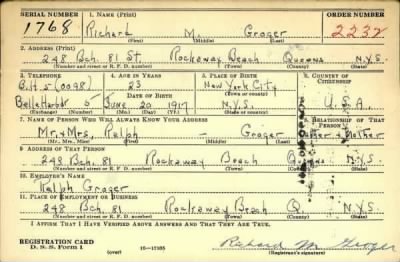 SERIAL NUMBER 1. NAME (Print) ORDER NUMBER
1768 Richard M. Groger 2232
(First) (Middle) (Last)
2. ADDRESS (Print)
248 Bch. 81 St. Rockaway Beach Queens N.Y.S.
(Number and street or R. F. D. number) (Town) (County) (State)
3. TELEPHONE 4. AGE IN YEARS 5. PLACE OF BIRTH 6. COUNTRY OF CITIZENSHIP
B.H. 5 (0098) 23 New York City
DATE OF BIRTH (Town or county)
Belle Harbor 5 June 20 1917 N.Y.S. U.S.A.
(Exchange) (Number) (Mo.) (Day) (Yr.) (State or country)
7. NAME OF PERSON WHO WILL ALWAYS KNOW YOUR ADDRESS 8. RELATIONSHIP OF THAT PERSON
Mr. & Mrs. Ralph - Groger Father & Mother
(Mr., Mrs., Miss) (First) (Middle) (Last)
9. ADDRESS OF THAT PERSON
248 Bch. 81 Rockaway Beach Queens N.Y.S.
(Number and street or R. F. D. number) (Town) (County) (State)
10. EMPLOYER'S NAME
Ralph Groger
11. PLACE OF EMPLOYMENT OR BUSINESS
248 Bch. 81 Rockaway Beach Q. N.Y.S.
(Number and street or R. F. D. number) (Town) (County) (State)
I AFFIRM THAT I HAVE VERIFIED ABOVE ANSWERS AND THAT THEY ARE TRUE.
REGISTRATION CARD
D. S. S. Form 1 16—17105 Richard M Groger
(Registrant's signature)